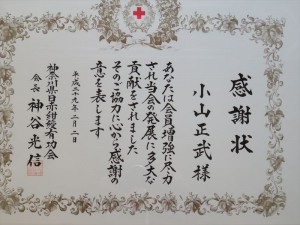 感謝状
小山正武様
あなたは会員増強に尽力
され当会の発展に多大な
貢献をされました
そのご協力に心から感謝の
意を表します
平成二十九年二月二日
神奈川県日赤紺綬有功会
会長 神谷光信